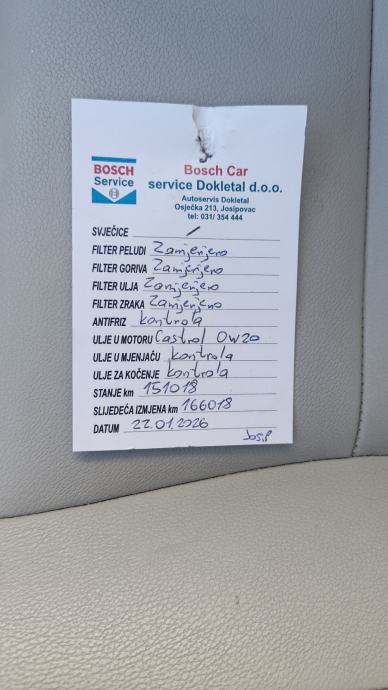 BOSCH
Service
BOSCH
Bosch Car
service Dokletal d.o.o.
Autoservis Dokletal
Osječka 213, Josipovac
tel: 031/ 354 444
SVJEČICE /
FILTER PELUDI Zamjenjeno
FILTER GORIVA Zamjenjeno
FILTER ULJA Zamjenjeno
FILTER ZRAKA Zamjenjeno
ANTIFRIZ kontrola
ULJE U MOTORU Castrol 0W20
ULJE U MJENJAČU kontrola
ULJE ZA KOČENJE kontrola
STANJE km 151018
SLIJEDEĆA IZMJENA km 166018
DATUM 22.01.2026
Josip